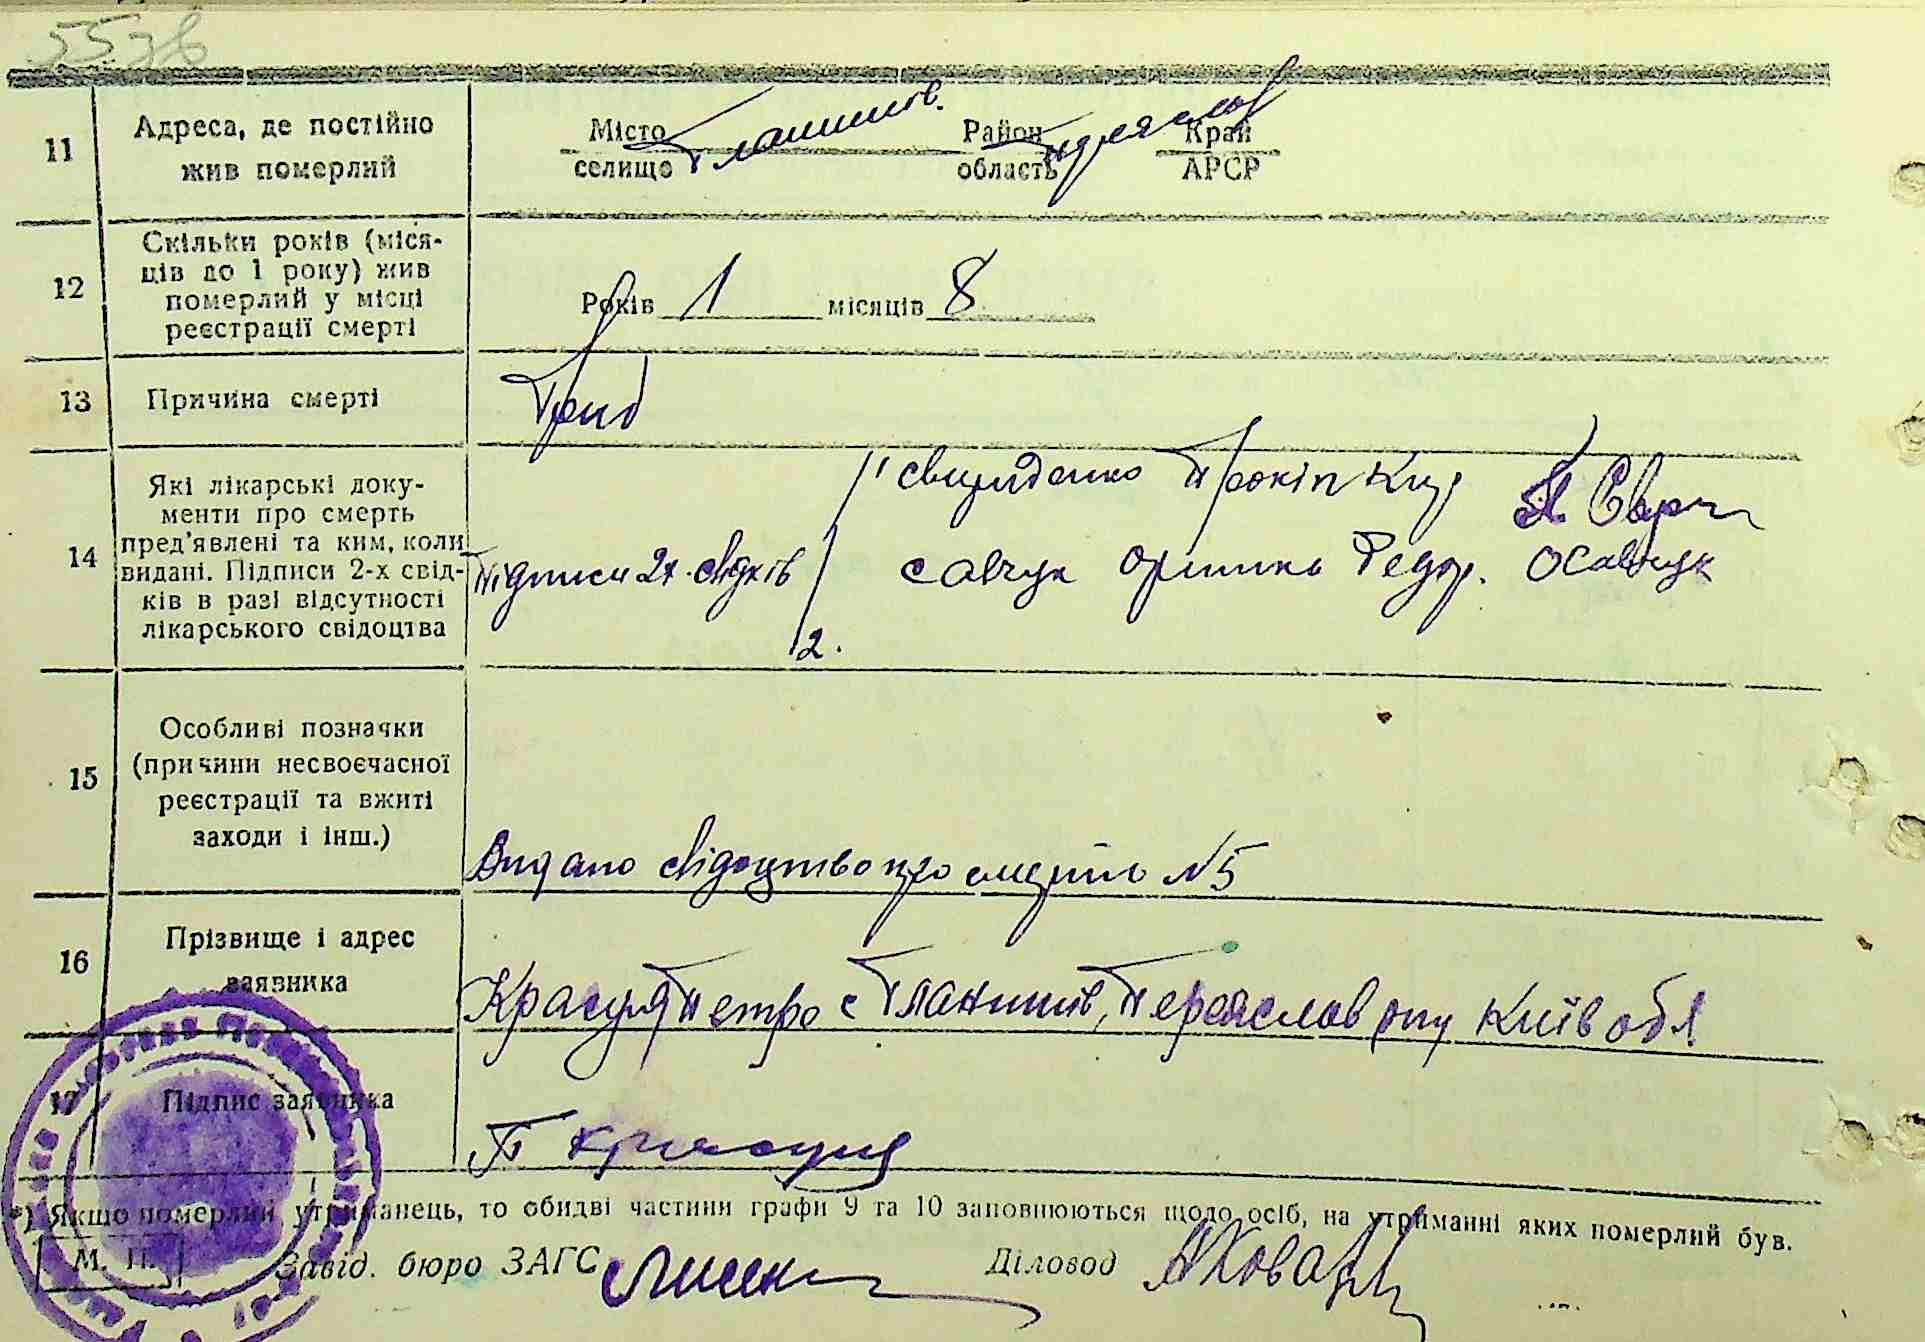 55 зв
11
Адреса, де постійно
жив померлий
Місто
селище
Гланишів.
Район
область
Переяслов
Край
АРСР
12
Скільки років (міся-
ців до 1 року) жив
померлий у місці
реєстрації смерті
Років 1 місяців 8
13
Причина смерті
Гриб
14
Які лікарські доку-
менти про смерть
пред'явлені та ким, коли
видані. Підписи 2-х свід-
ків в разі відсутності
лікарського свідоцтва
Підписи 2х свідків
Прокіп
савчук Федор. ОСавчук
2.
15
Особливі позначки
(причини несвоєчасної
реєстрації та вжиті
заходи і інш.)
Видано свідоцтво про смерть №5
16
Прізвище і адрес
заявника
Красуля Петро с Гланишів, Переяслов Київ обл
17
Підпис заявника
П Красуля
*) Якщо померлий утриманець, то обидві частини графи 9 та 10 заповнюються щодо осіб, на утриманні яких померлий був.
М. П.
Завід. бюро ЗАГС
Діловод